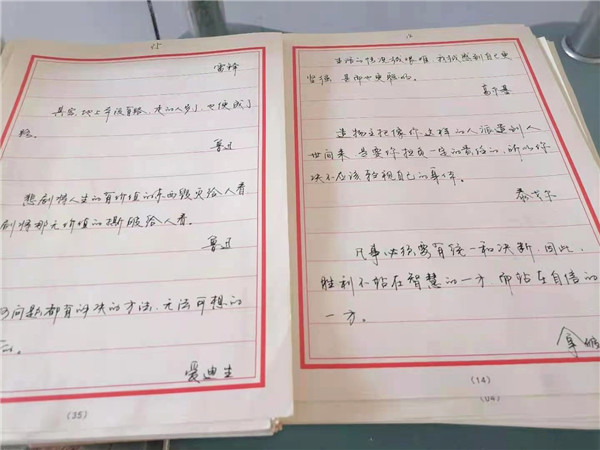 雷锋
其实地上本没有路,走的人多了,也便成了
路。
鲁迅
悲剧将人生的有价值的东西毁灭给人看
剧将那无价值的撕破给人看。
鲁迅
问题都有解决的方法,无法可想的
爱迪生
(35)
生活的情况越艰难,我越感到自己更
坚强,甚而也更聪明。
高尔基
造物主把像你这样的人派遣到人
世间来,是要你担负一定的责任的,所以你
决不应该轻视自己的身体。
泰戈尔
凡事必须要有统一和决断,因此,
胜利不站在智慧的一方,而站在自信的
一方。
拿破
(14)
(04)